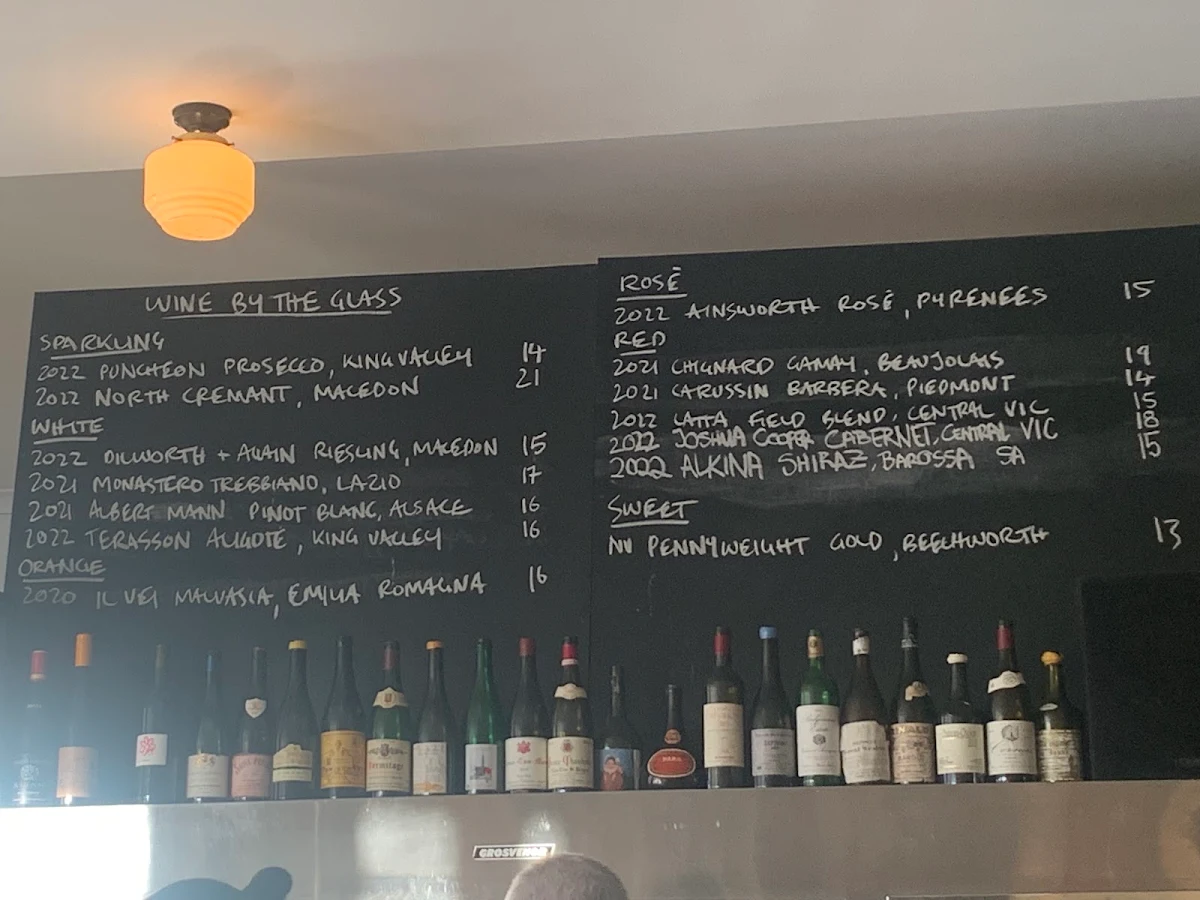 WINE BY THE GLASS
SPARKLING
2022 PUNCHEON PROSECCO, KING VALLEY 14
2022 NORTH CREMANT, MACEDON 21
WHITE
2022 DILWORTH + ALLAIN RIESLING, MACEDON 15
2021 MONASTERO TREBBIANO, LAZIO 17
2021 ALBERT MANN PINOT BLANC, ALSACE 16
2022 TERASSON ALIGOTÉ, KING VALLEY 16
ORANGE
2020 IL VEI MALVASIA, EMILIA ROMAGNA 16
ROSÉ
2022 AINSWORTH ROSÉ, PYRENEES 15
RED
2021 CHIGNARD GAMAY, BEAUJOLAIS 19
2021 CARUSSIN BARBERA, PIEDMONT 14
2022 LATTA FIELD BLEND, CENTRAL VIC 15
2022 JOSHUA COOPER CABERNET, CENTRAL VIC 18
2022 ALKINA SHIRAZ, BAROSSA SA 15
SWEET
NV PENNYWEIGHT GOLD, BEECHWORTH 13
Hermitage
GROSVENOR